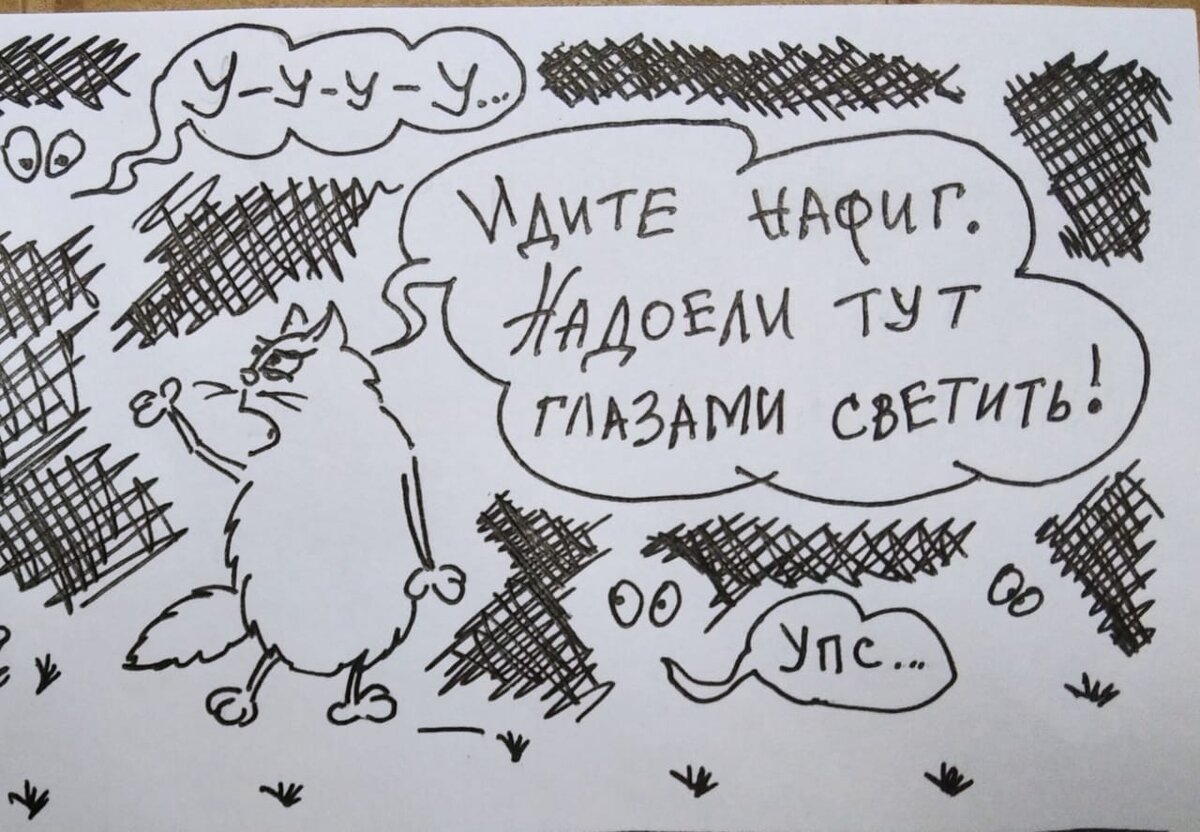 У-У-У-У...
ИДИТЕ НАФИГ.
НАДОЕЛИ ТУТ
ГЛАЗАМИ СВЕТИТЬ!
УПС...